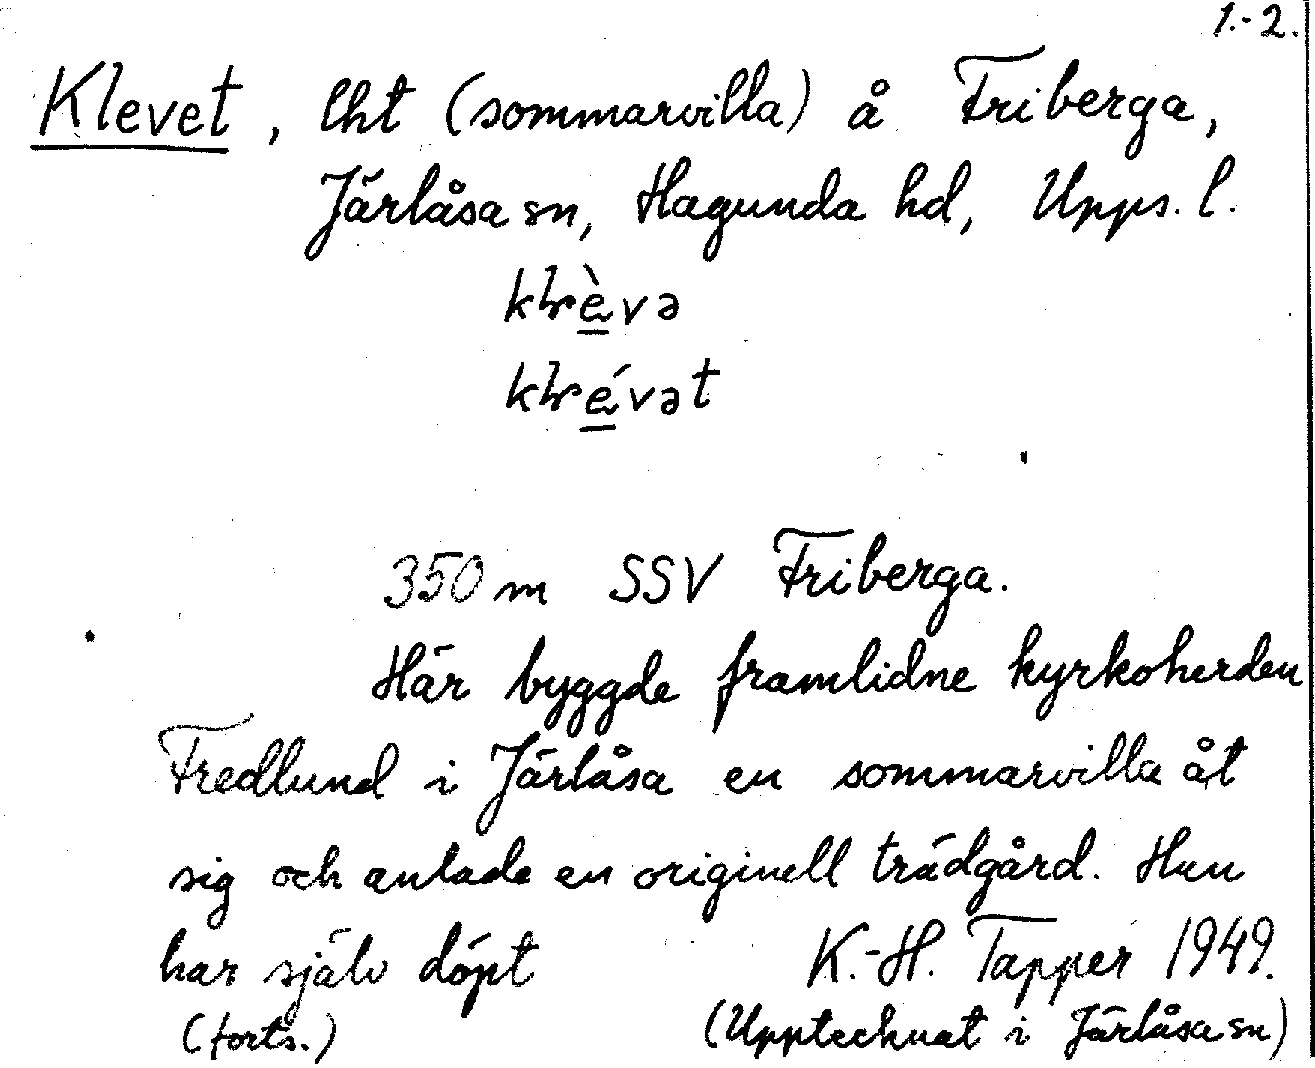 1.-2.
Klevet, lht (sommarvilla) å Friberga,
Järlåsa sn, Hagunda hd, Upps. l.
350 m SSV Friberga.
Här byggde framlidne kyrkoherden
Fredlund i Järlåsa en sommarvilla åt
sig och anlade en originell trädgård. Han
har själv döpt
K.-H. Tapper 1949.
(forts.)
(Upptecknat i Järlåsa sn)